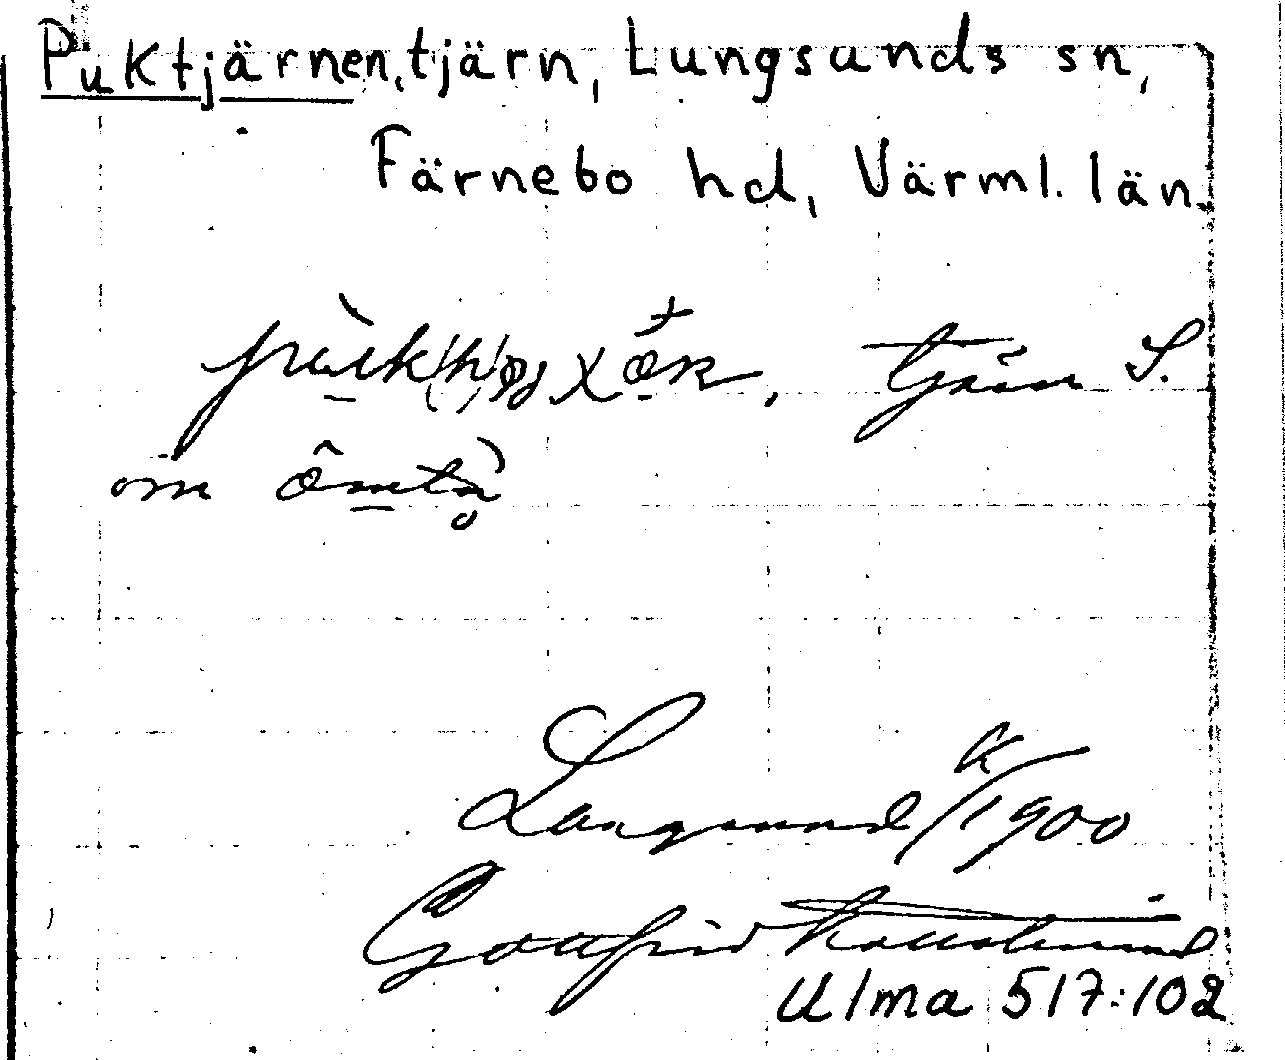 Puktjärnen, tjärn, Lungsunds sn,
Färnebo hd, Värml. län.
tjärn S.
om
Lungsund 1900
Gottfrid Kallstenius
Ulma 517:102